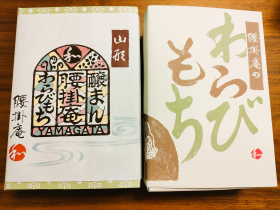 山形
和
醸まん
腰掛庵
わらびもち
YAMAGATA
腰掛庵
和
腰掛庵の
わらび
もち
和